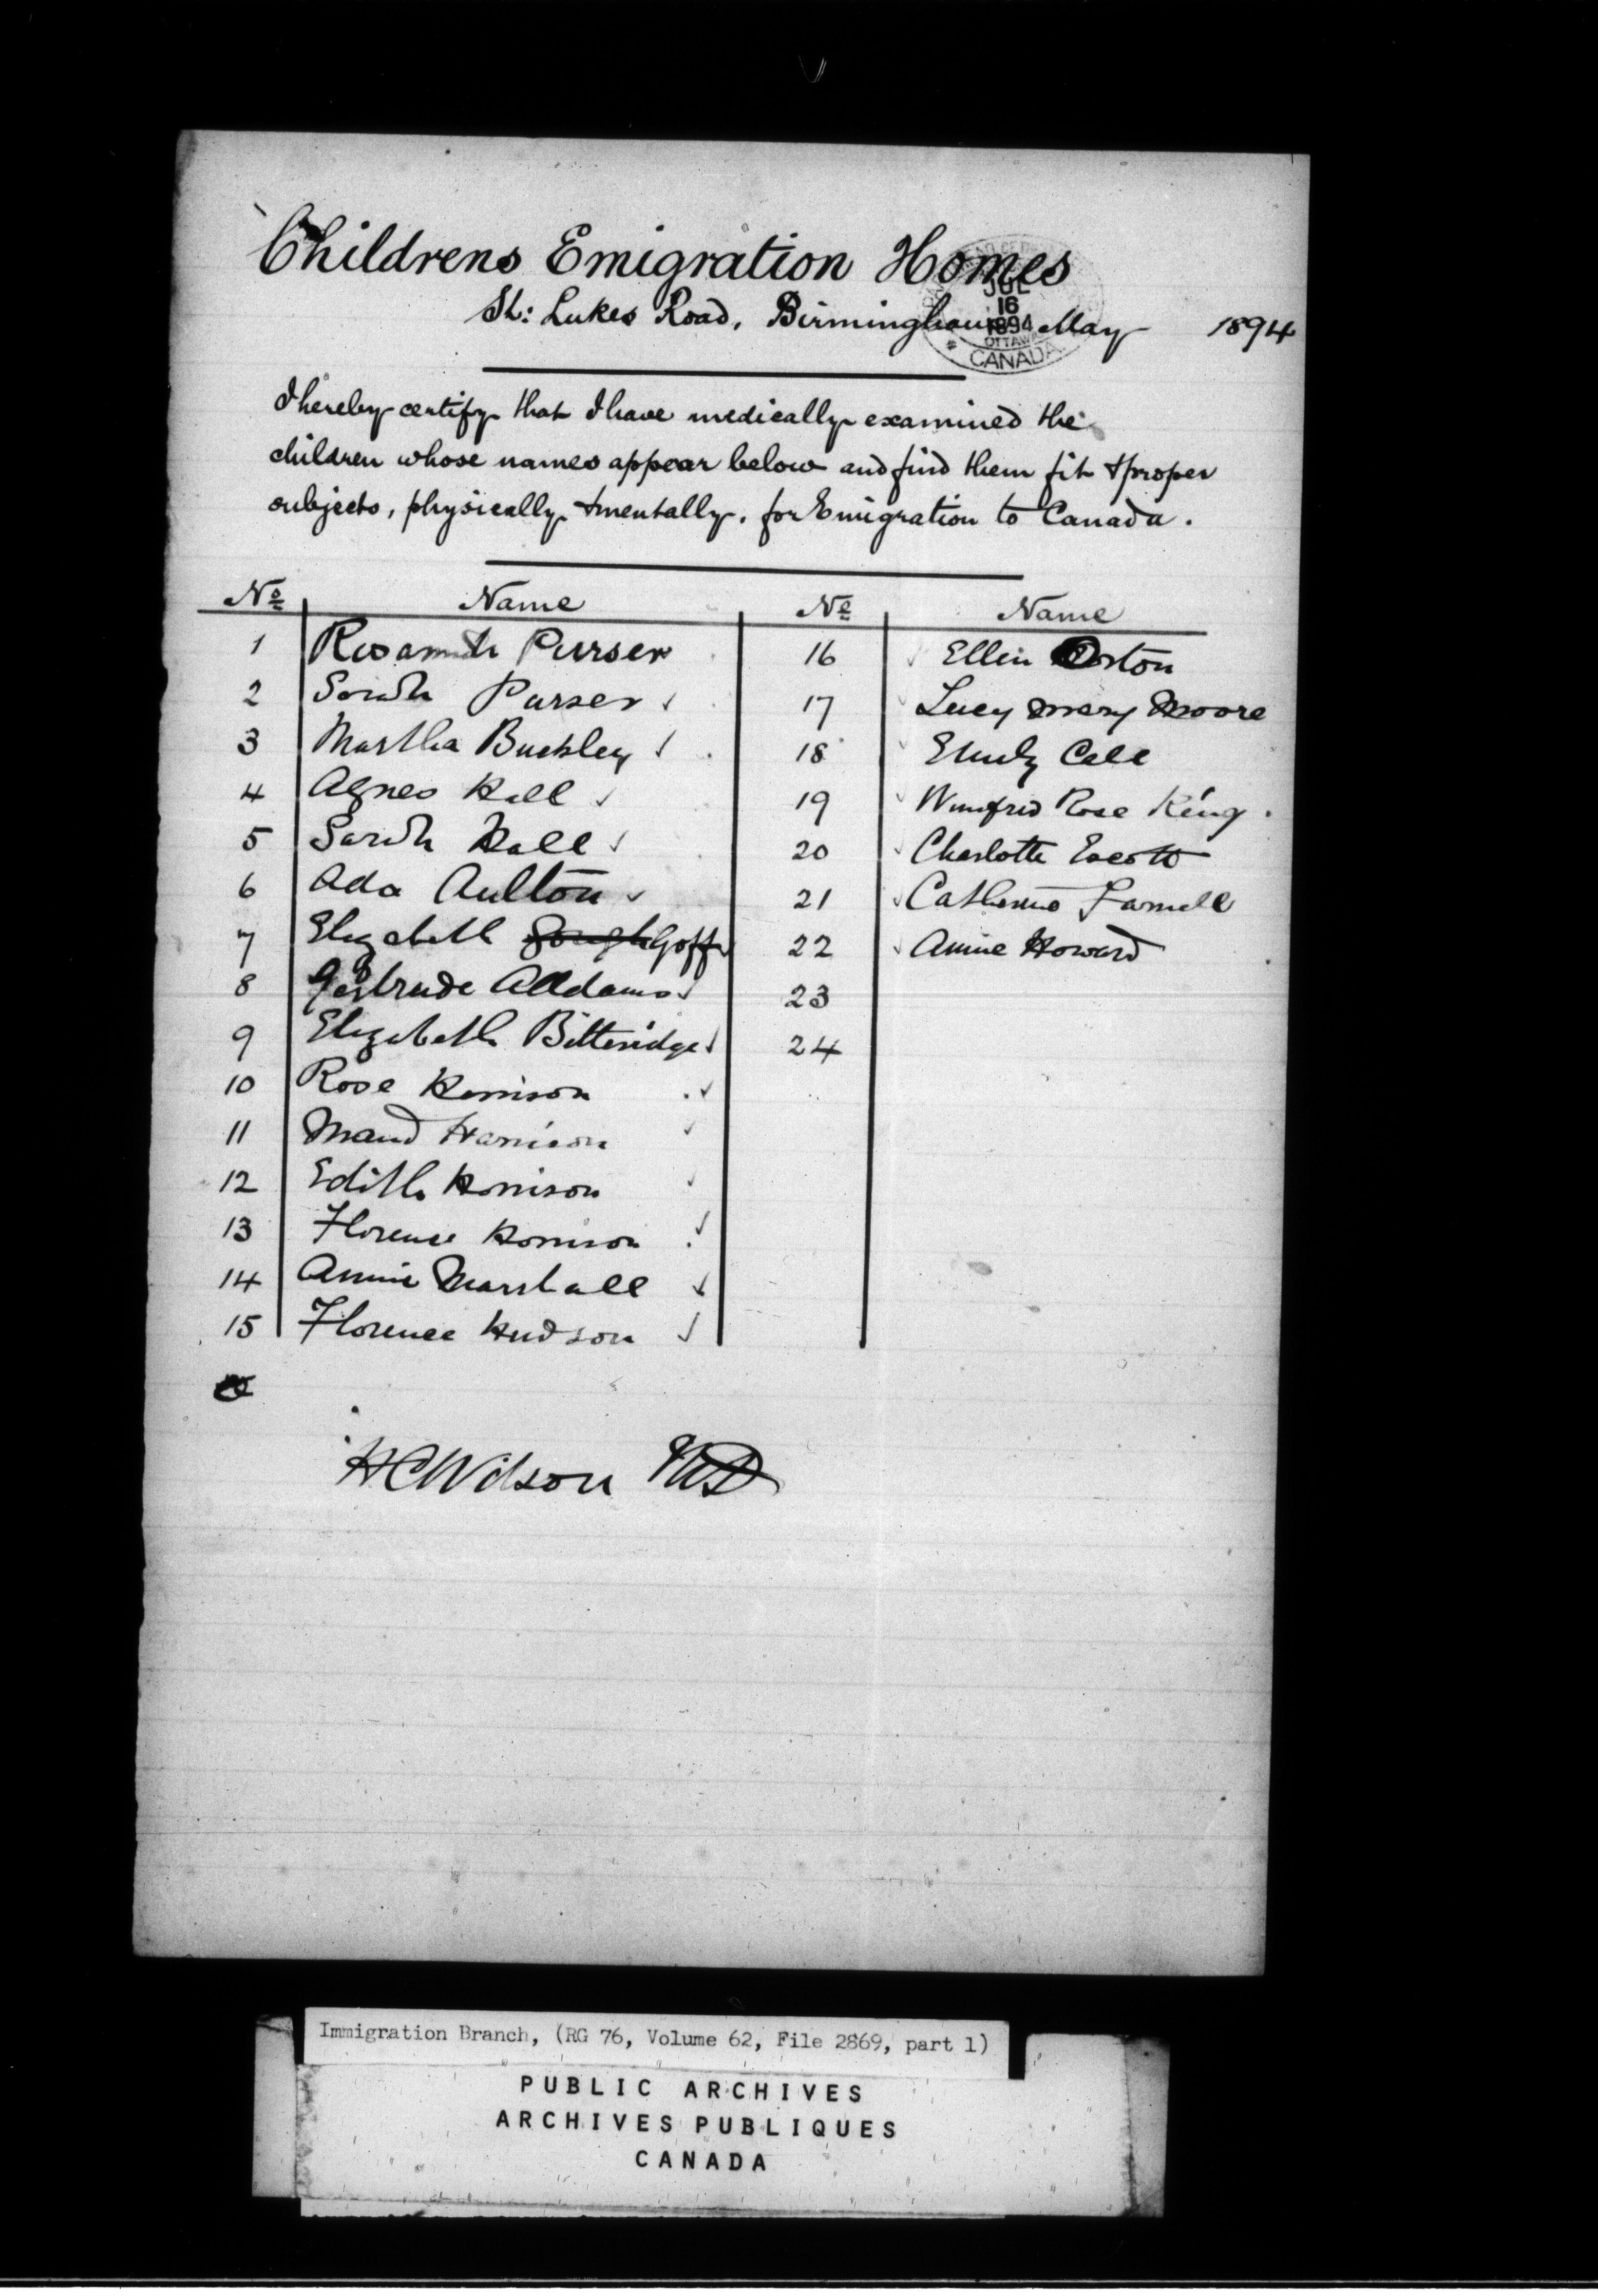 Childrens Emigration Homes
St: Lukes Road, Birmingham May 1894
JUL
16
1894
OTTAWA
CANADA
I hereby certify that I have medically examined the
children whose names appear below and find them fit & proper
subjects, physically & mentally, for Emigration to Canada.
No Name
1 Purser
2 Sarah Purser
3 Martha Buckley
4 Agnes Hall
5 Sarah Hall
6 Ada Aulton
7 Elizabeth Gough Goff
8 Gertrude Addams
9 Elizabeth Bitteridge
10 Rose Harrison
11 Maud Harrison
12 Edith Harrison
13 Florence Harrison
14 Annie Marshall
15 Florence Hudson
No Name
16 Ellen Orton
17 Lucy Mary Moore
18 Emily
19 Winifred Rose King
20 Charlotte Escott
21 Catherine Farnell
22 Annie Howard
23
24
HC Wilson MD
Immigration Branch, (RG 76, Volume 62, File 2869, part 1)
PUBLIC ARCHIVES
ARCHIVES PUBLIQUES
CANADA